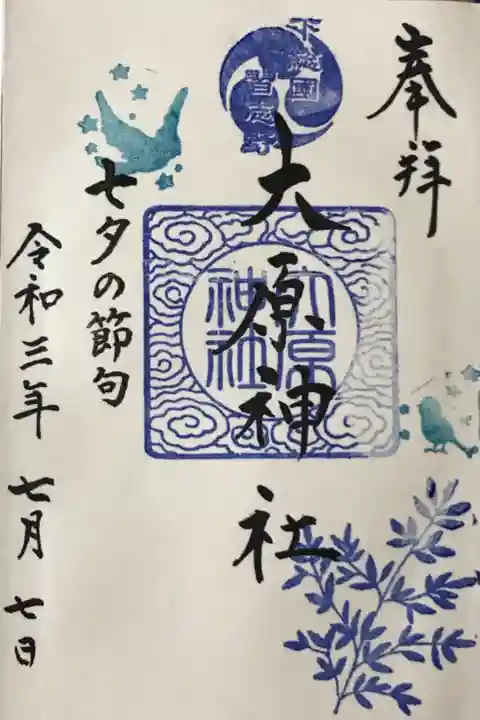 奉拝
下総國
習志野
大原神社
大原
神社
七夕の節句
令和三年 七月 七日